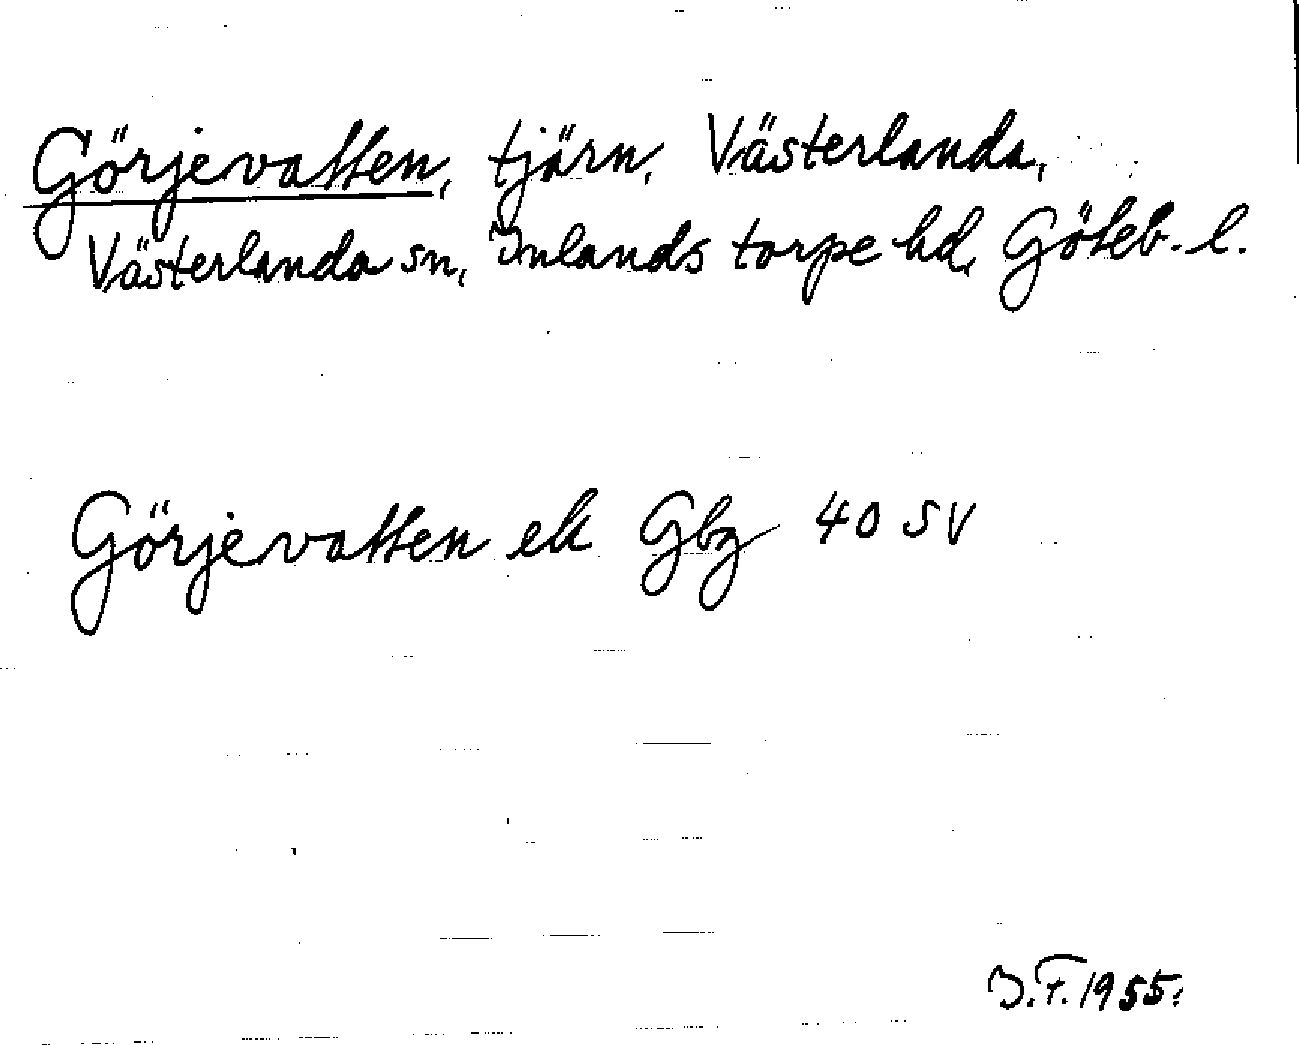 Görjevatten, tjärn, Västerlanda,
Västerlanda sn, Inlands torpe hd, Göteb. l.
Görjevatten ek Gbg 40 SV
I.F. 1955.